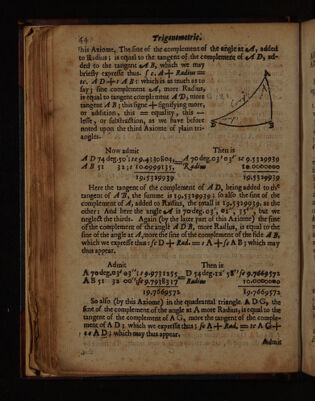 44 Trigonometrie.
this Axiome, The sine of the complement of the angle at A, added
to Radius; is equal to the tangent of the complement of A D, ad-
ded to the tangent A B, which we may
briefly expresse thus. s c. A + Radius =
tc. A D + t A B: which is as much as to
say; sine complement A, more Radius,
is equal to tangent complement A D, more
tangent A B; this signe + signifying more,
or addition, this = equality, this —
lesse, or substraction, as we have before
noted upon the third Axiome of plain tri-
angles.
Now admit Then is
A D 74 deg. 50': tc 9.4330804, A 70 deg. 03' 03" sc 9.5329939
A B 51 32 : t 10.0999135, Radius 10.0000000
19.5329939 19.5329939
Here the tangent of the complement of A D, being added to the
tangent of A B, the summe is 19.5329939; so also the sine of the
complement of A, added to Radius, the totall is 19.5329939, as the
other: And here the angle A is 70 deg. 03', 02", 35"', but we
neglect the thirds. Again (by the later part of this Axiome) the sine
of the complement of the angle A D B, more Radius, is equal to the
sine of the angle at A, more the sine of the complement of the side A B,
which we expresse thus: sc D + Rad. = s A + sc A B; which may
thus appear.
Admit Then is
A 70 deg. 03' 03": s 9.9731255 D 54 deg. 12' 58" sc 9.7669572
A B 51 32 00" sc 9.7938317 Radius 10.0000000
19.7669572 19.7669572
So also (by this Axiome) in the quadrantal triangle A D G, the
sine of the complement of the angle at A more Radius, is equal to the
tangent of the complement of A G, more the tangent of the comple-
ment of A D; which we expresse thus: sc A + Rad. = tc A G +
tc A D; which may thus appear.
Admit